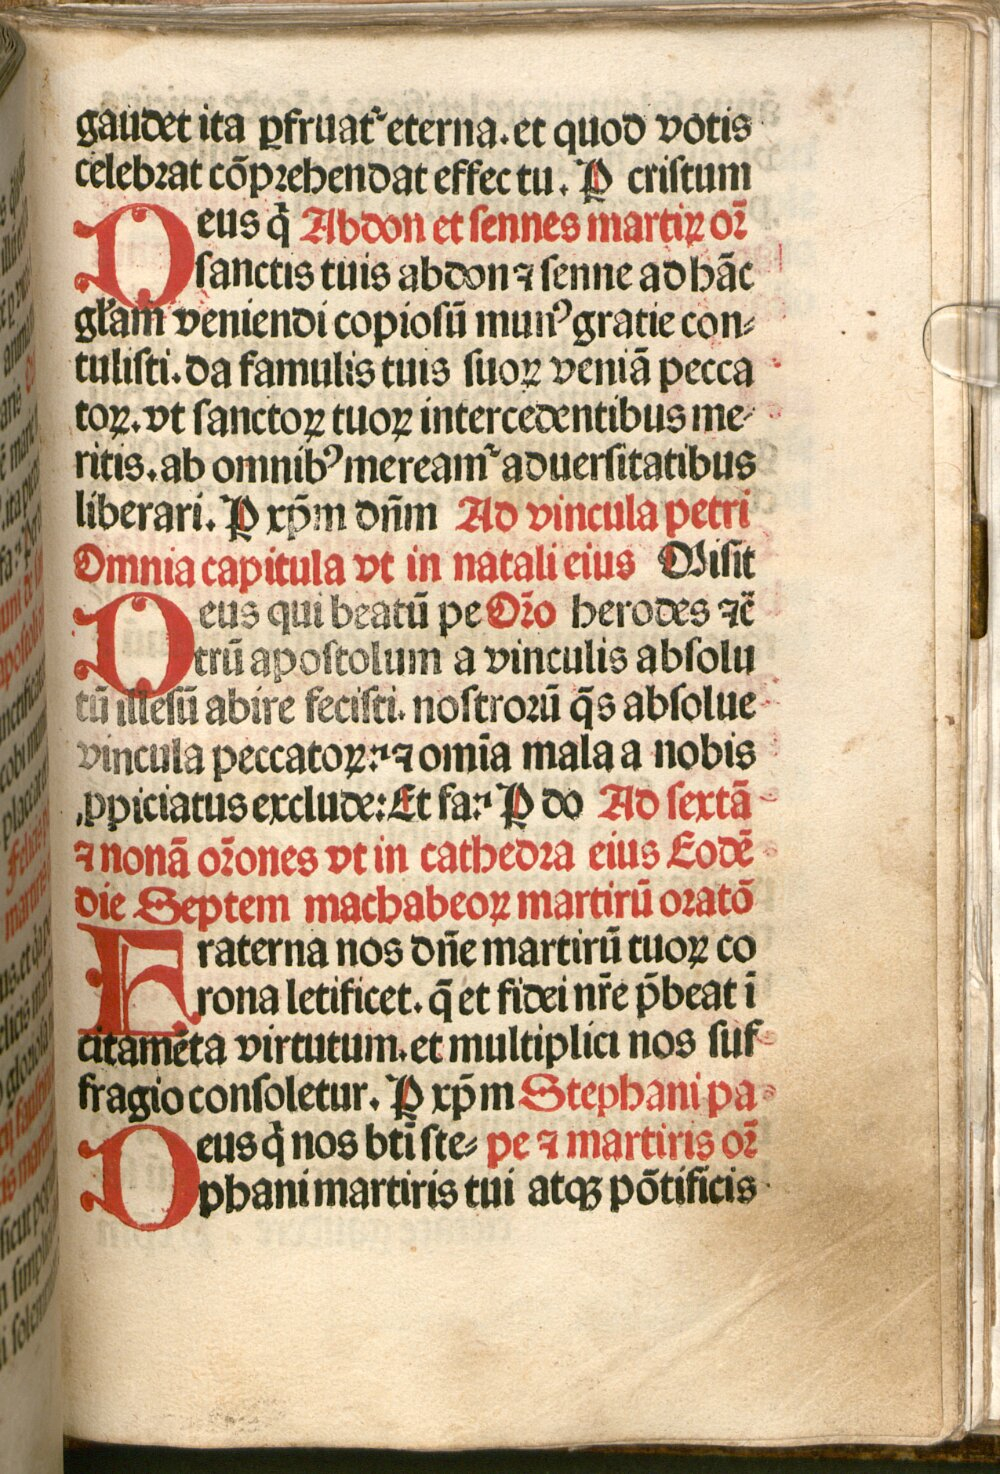 gaudet ita ꝑfruat᷑ eterna. et quod votis
celebrat cõprehendat effectu. P cristum
Deus q̃ Abdon et sennes martiꝝ or̃
sanctis tuis abdon ⁊ senne ad hãc
gl̃am veniendi copiosũ munꝰ gratie con⸗
tulisti. da famulis tuis suoꝝ veniã pecca
toꝝ. vt sanctoꝝ tuoꝝ intercedentibus me⸗
ritis. ab omnibꝰ mereamᷣ aduersitatibus
liberari. P xp̃m dñm Ad vincula petri
Omnia capitula vt in natali eius Misit
Deus qui beatũ pe Or̃o herodes ⁊c̃
trũ apostolum a vinculis absolu
tũ illesũ abire fecisti. nostrorũ q̃s absolue
vincula peccatoꝝ: ⁊ omĩa mala a nobis
ꝓpiciatus exclude: Et fa: P do Ad sextã
⁊ nonã or̃ones vt in cathedra eius Eodẽ
die Septem machabeoꝝ martirũ oratõ
Fraterna nos dñe martirũ tuoꝝ co
rona letificet. q̃ et fidei nr̃e p̃beat ĩ
citamẽta virtutum. et multiplici nos suf
fragio consoletur. P xp̃m Stephani pa⸗
Deus q̃ nos bt̃i ste⸗ pe ⁊ martiris or̃
phani martiris tui atqꝫ põtificis